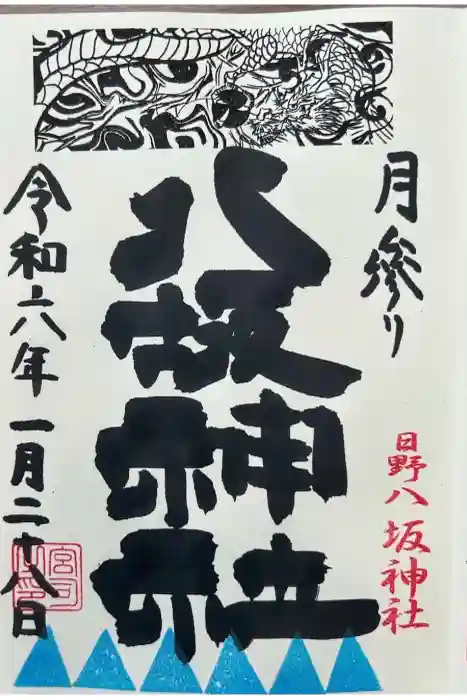 月參り
日野八坂神社
八坂神社
令和六年一月二十八日
宮司之印